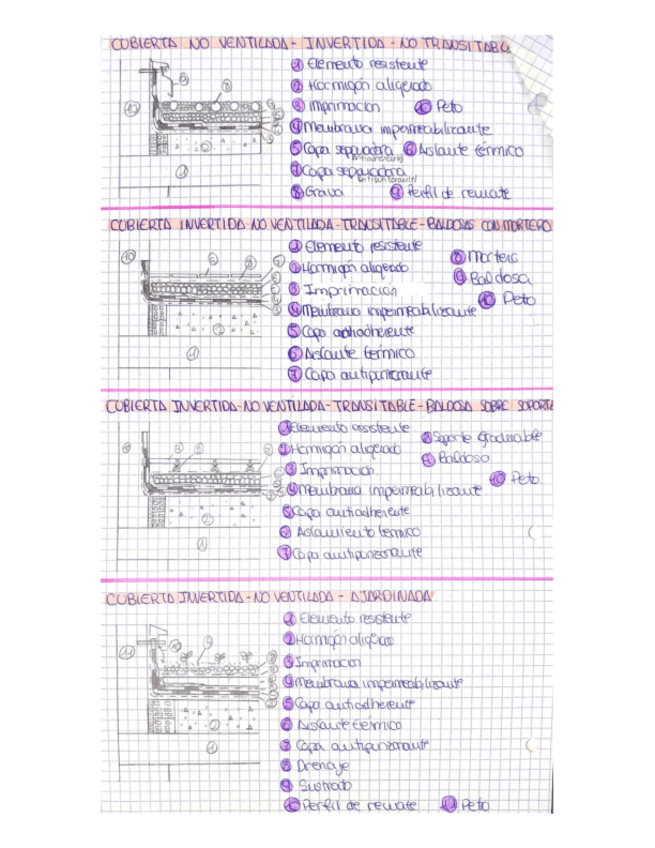 CUBIERTA NO VENTILADA - INVERTIDA - NO TRANSITABL
① Elemento resistente
② Hormigón aligerado
③ Imprimacion ⑩ Peto
④ Membrana impermeabilizante
⑤ Capa separadora ⑥ Aislante térmico
⑦ Capa separadora
antipunzonante
⑧ Grava ⑨ Perfil de remate
CUBIERTA INVERTIDA-NO VENTILADA-TRANSITABLE-BALDOSAS CON MORTERO
① Elemento resistente
② Hormigón aligerado ⑧ Mortero
③ Imprimación ⑨ Baldosa
④ Membrana impermeabilizante ⑩ Peto
⑤ Capa antiadherente
⑥ Aislante térmico
⑦ Capa antipunzonante
CUBIERTA INVERTIDA-NO VENTILADA-TRANSITABLE-BALDOSA SOBRE SOPORTE
① Elemento resistente
② Hormigón aligerado ⑧ Soporte graduable
③ Imprimación ⑨ Baldosa
④ Membrana impermeabilizante ⑩ Peto
⑤ Capa antiadherente
⑥ Aislamiento térmico
⑦ Capa antipunzonante
CUBIERTA INVERTIDA-NO VENTILADA - AJARDINADA
① Elemento resistente
② Hormigón aligerado
③ Imprimacion
④ Membrana impermeabilizante
⑤ Capa antiadherente
⑥ Aislante térmico
⑦ Capa antipunzonante
⑧ Drenaje
⑨ Sustrato
⑩ Perfil de remate ⑪ Peto